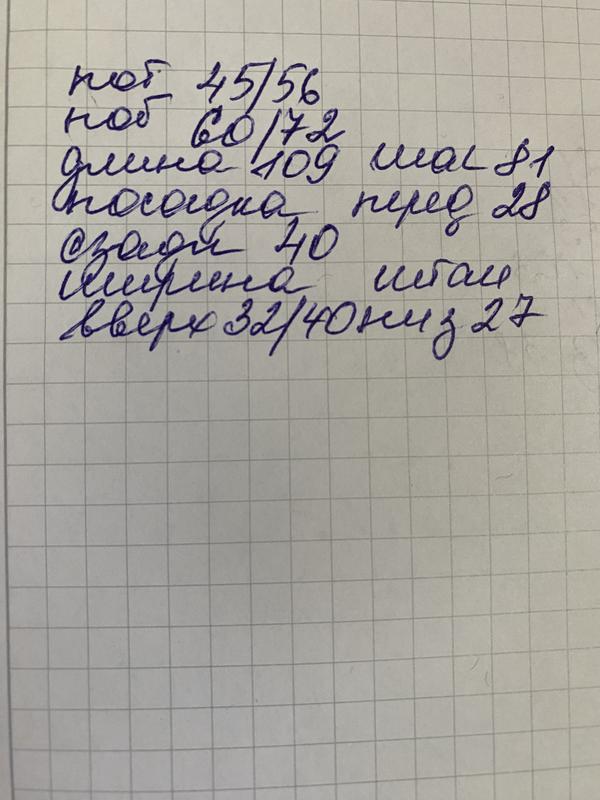 пот 45/56
поб 60/72
длина 109 шаг 81
посадка перед 28
сзади 40
ширина штан
вверх 32/40 низ 27